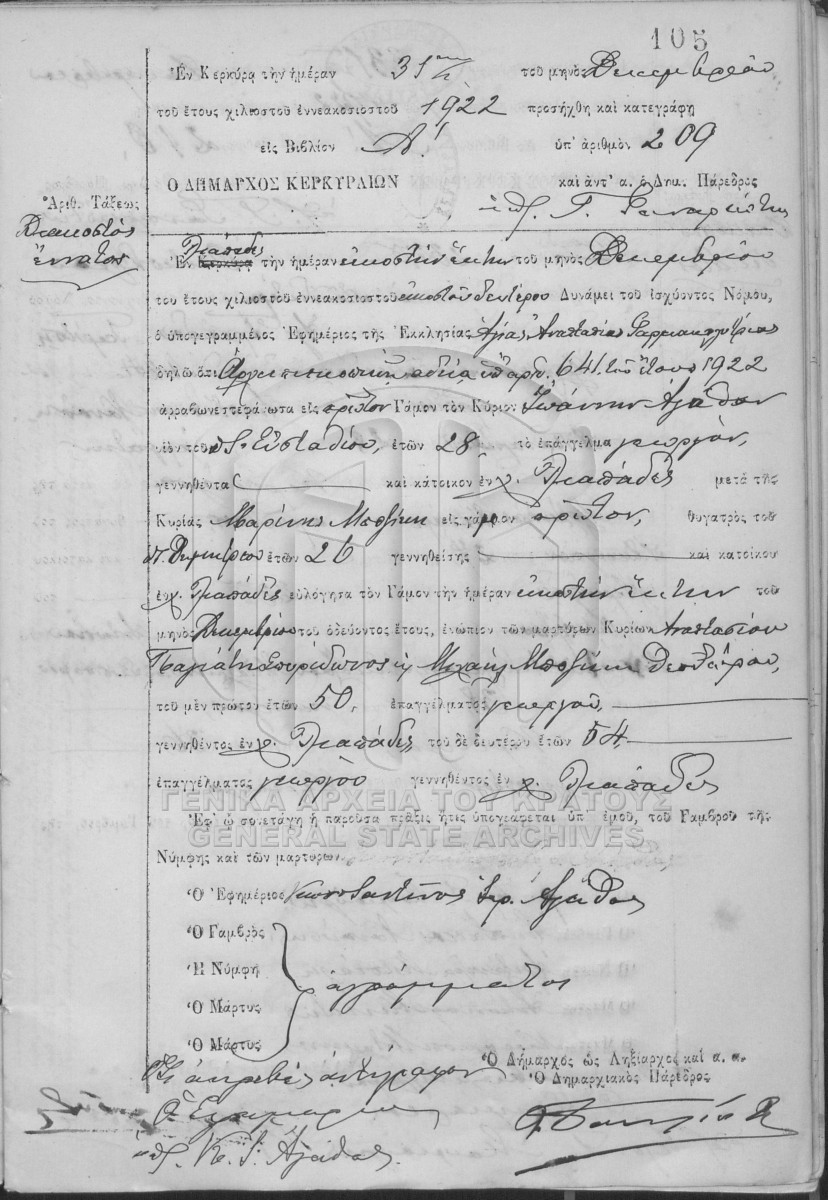 105
Ἐν Κερκύρᾳ τὴν ἡμέραν 31ην τοῦ μηνὸς Δεκεμβρίου
τοῦ ἔτους χιλιοστοῦ ἐννεακοσιοστοῦ 1922 προσήχθη καὶ κατεγράφη
εἰς Βιβλίον Α! ὑπ' ἀριθμὸν 209
Ὁ ΔΗΜΑΡΧΟΣ ΚΕΡΚΥΡΑΙΩΝ καὶ ἀντ' α. ὁ Δημ. Πάρεδρος
Ἀριθ. Τάξεως
Διακοσιοστὸς
ἔννατος
Λιαπάδες
Ἐν Κερκύρᾳ τὴν ἡμέραν εἰκοστὴν ἕκτην τοῦ μηνὸς Δεκεμβρίου
του ἔτους χιλιοστοῦ ἐννεακοσιοστοῦ εἰκοστοῦ δευτέρου Δυνάμει τοῦ ἰσχύοντος Νόμου,
ὁ ὑπογεγραμμένος Ἐφημέριος τῆς Ἐκκλησίας Ἁγίας Ἀναστασίας Φαρμακολυτρίας
δηλῶ ὅτι Ἀρχιεπισκοπικῇ ἀδείᾳ ὑπ' ἀριθ. 641 τοῦ ἔτους 1922
ἀρραβωνεστεφάνωσα εἰς πρῶτον Γάμον τὸν Κύριον Ἰωάννην Ἀγάθον
υἱὸν τοῦ Εὐσταθίου, ἐτῶν 28 τὸ ἐπάγγελμα γεωργὸν,
γεννηθέντα καὶ κάτοικον ἐν χ. Λιαπάδες μετὰ τῆς
Κυρίας Μαρίνης Μπαζίκη εἰς γάμον πρῶτον, θυγατρὸς τοῦ
Δημητρίου ἐτῶν 26 γεννηθείσης καὶ κατοίκου
ἐν χ. Λιαπάδες εὐλόγησα τὸν Γάμον τὴν ἡμέραν εἰκοστὴν ἕκτην τοῦ
μηνὸς Δεκεμβρίου τοῦ ὁδεύοντος ἔτους, ἐνώπιον τῶν μαρτύρων Κυρίων Ἀναστασίου
Σπυρίδωνος Μπαζίκη Θεοδώρου,
τοῦ μὲν πρώτου ἐτῶν 50, ἐπαγγέλματος γεωργοῦ,
γεννηθέντος ἐν χ. Λιαπάδες τοῦ δὲ δευτέρου ἐτῶν 54
ἐπαγγέλματος γεωργοῦ γεννηθέντος ἐν χ. Λιαπάδες
ΓΕΝΙΚΑ ΑΡΧΕΙΑ ΤΟΥ ΚΡΑΤΟΥΣ
Ἐφ' ᾧ συνετάγη ἡ παροῦσα πρᾶξις ἥτις ὑπογράφεται ὑπ' ἐμοῦ, τοῦ Γαμβροῦ τῆς
GENERAL STATE ARCHIVES
Νύμφης καὶ τῶν μαρτύρων
Ὁ Ἐφημέριος Κωνσταντῖνος Ἱερ. Ἀγάθος
Ὁ Γαμβρὸς
Ἡ Νύμφη
ἀγράμματοι
Ὁ Μάρτυς
Ὁ Μάρτυς
Ὁ Δήμαρχος ὡς Ληξίαρχος καὶ α. α.
Ὁ Δημαρχιακὸς Πάρεδρος
ἀκριβὲς ἀντίγραφον
Ὁ Ἐφημέριος
Κ. Ἀγάθος